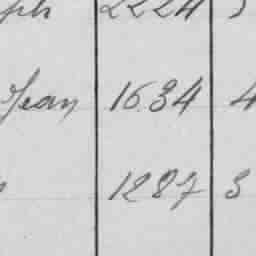 2224
Jean 1634 4
1287 3